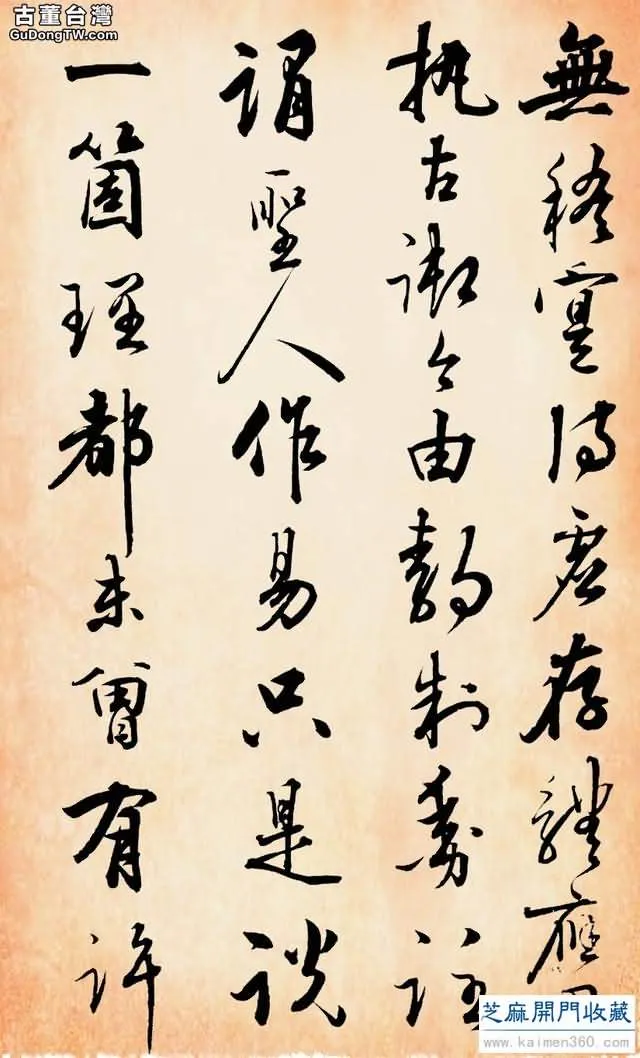 古董台灣
GuDongTW.com
無稽寔待虛存體應
執古御今由靜制動註
謂聖人作易只是說
一箇理都未曾有許
芝麻開門收藏
www.kaimen360.com